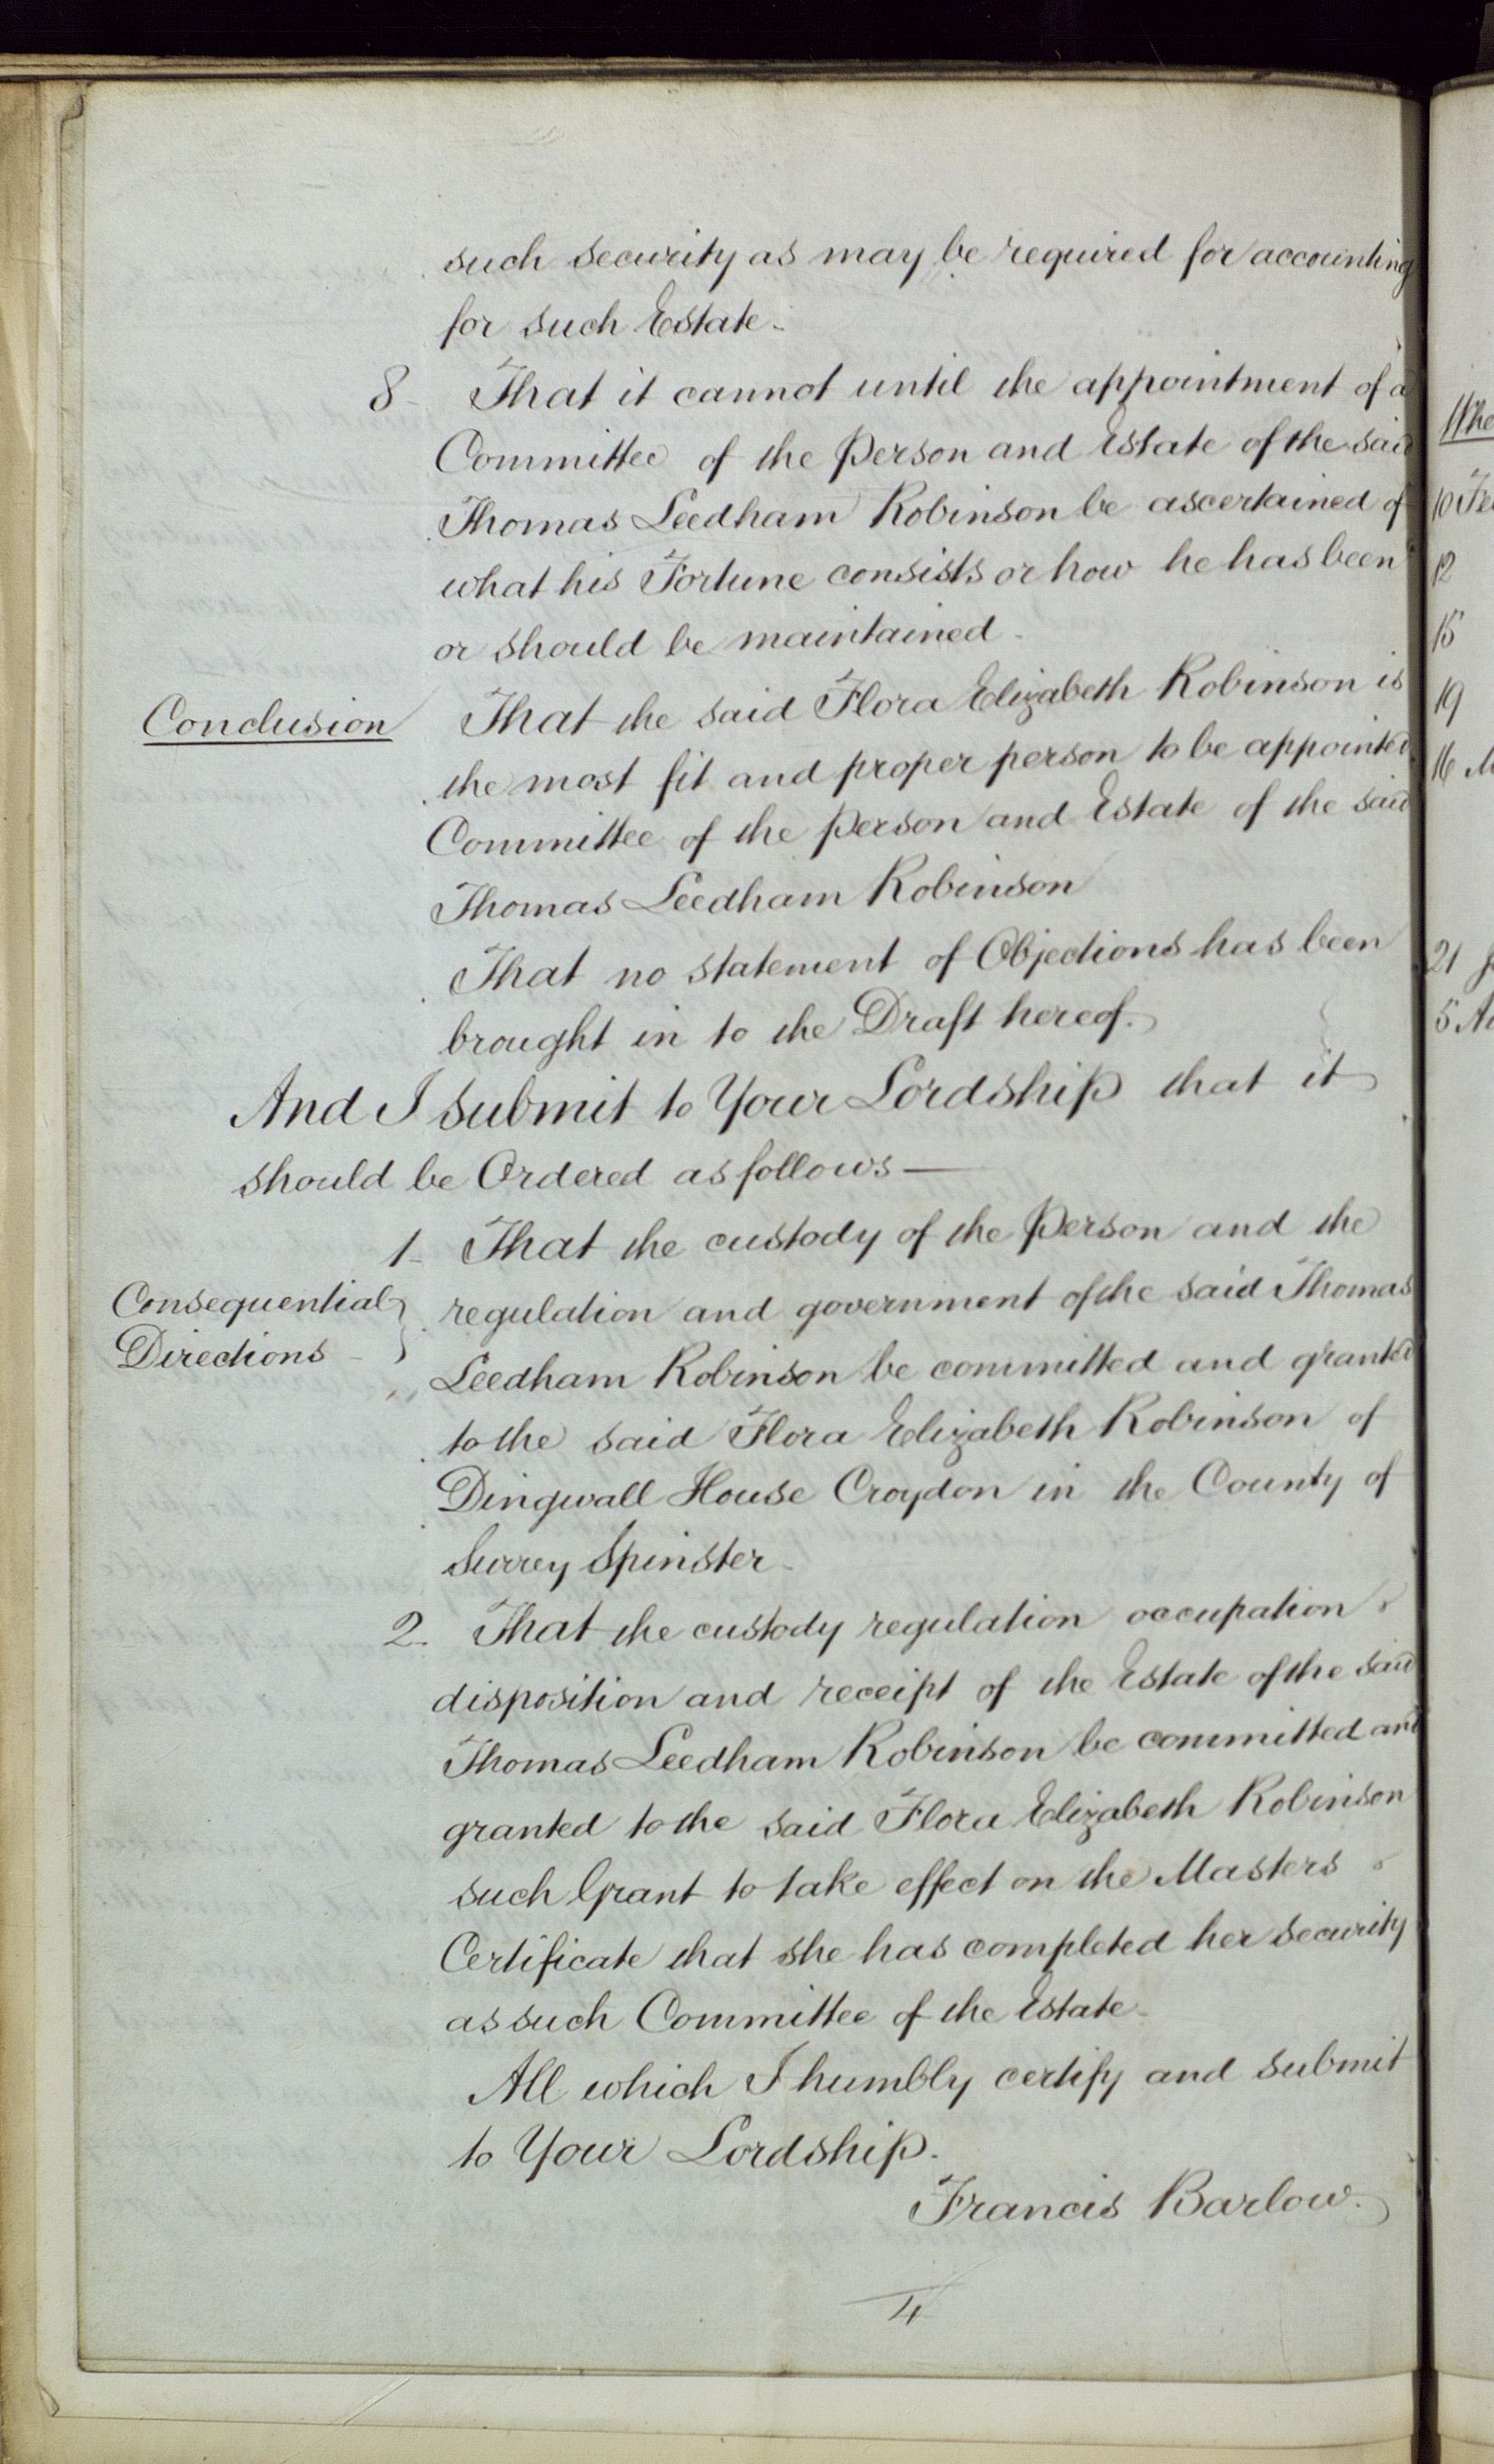 such security as may be required for accounting
for such Estate.
8 - That it cannot until the appointment of a
Committee of the Person and Estate of the said
Thomas Leedham Robinson be ascertained of
what his Fortune consists or how he has been
or should be maintained -
Conclusion That the said Flora Elizabeth Robinson is
the most fit and proper person to be appointed
Committee of the Person and Estate of the said
Thomas Leedham Robinson
That no statement of Objections has been
brought in to the Draft hereof.
And I submit to Your Lordship that it
should be Ordered as follows —
1 - That the custody of the Person and the
Consequential regulation and government of the said Thomas
Directions - Leedham Robinson be committed and granted
to the said Flora Elizabeth Robinson of
Dingwall House Croydon in the County of
Surrey Spinster -
2 - That the custody regulation occupation
disposition and receipt of the Estate of the said
Thomas Leedham Robinson be committed and
granted to the said Flora Elizabeth Robinson
such Grant to take effect on the Masters
Certificate that she has completed her security
as such Committee of the Estate -
All which I humbly certify and submit
to Your Lordship.
Francis Barlow.
4
10
12
15
19
16
21
5